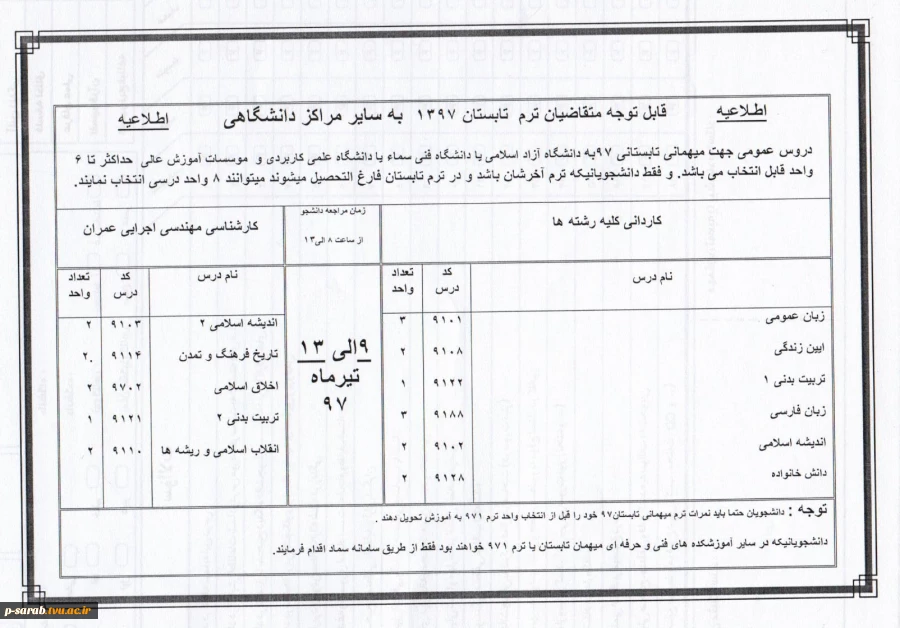 اطلاعیه قابل توجه متقاضیان ترم تابستان ۱۳۹۷ به سایر مراکز دانشگاهی اطلاعیه
دروس عمومی جهت میهمانی تابستانی ۹۷به دانشگاه آزاد اسلامی یا دانشگاه فنی سماء یا دانشگاه علمی کاربردی و موسسات آموزش عالی حداکثر تا ۶
واحد قابل انتخاب می باشد. و فقط دانشجویانیکه ترم آخرشان باشد و در ترم تابستان فارغ التحصیل میشوند میتوانند ۸ واحد درسی انتخاب نمایند.
کاردانی کلیه رشته ها
نام درس کد درس تعداد واحد
زبان عمومی ۹۱۰۱ ۳
ایین زندگی ۹۱۰۸ ۲
تربیت بدنی ۱ ۹۱۲۲ ۱
زبان فارسی ۹۱۸۸ ۳
اندیشه اسلامی ۹۱۰۲ ۲
دانش خانواده ۹۱۲۸ ۲
زمان مراجعه دانشجو
از ساعت ۸ الی۱۳
۹الی ۱۳
تیرماه
۹۷
کارشناسی مهندسی اجرایی عمران
نام درس کد درس تعداد واحد
اندیشه اسلامی ۲ ۹۱۰۳ ۲
تاریخ فرهنگ و تمدن ۹۱۱۴ ۲.
اخلاق اسلامی ۹۷۰۲ ۲
تربیت بدنی ۲ ۹۱۲۱ ۱
انقلاب اسلامی و ریشه ها ۹۱۱۰ ۲
توجه : دانشجویان حتما باید نمرات ترم میهمانی تابستان۹۷ خود را قبل از انتخاب واحد ترم ۹۷۱ به آموزش تحویل دهند .
دانشجویانیکه در سایر آموزشکده های فنی و حرفه ای میهمان تابستان یا ترم ۹۷۱ خواهند بود فقط از طریق سامانه سماد اقدام فرمایند.
p-sarab.tvu.ac.ir